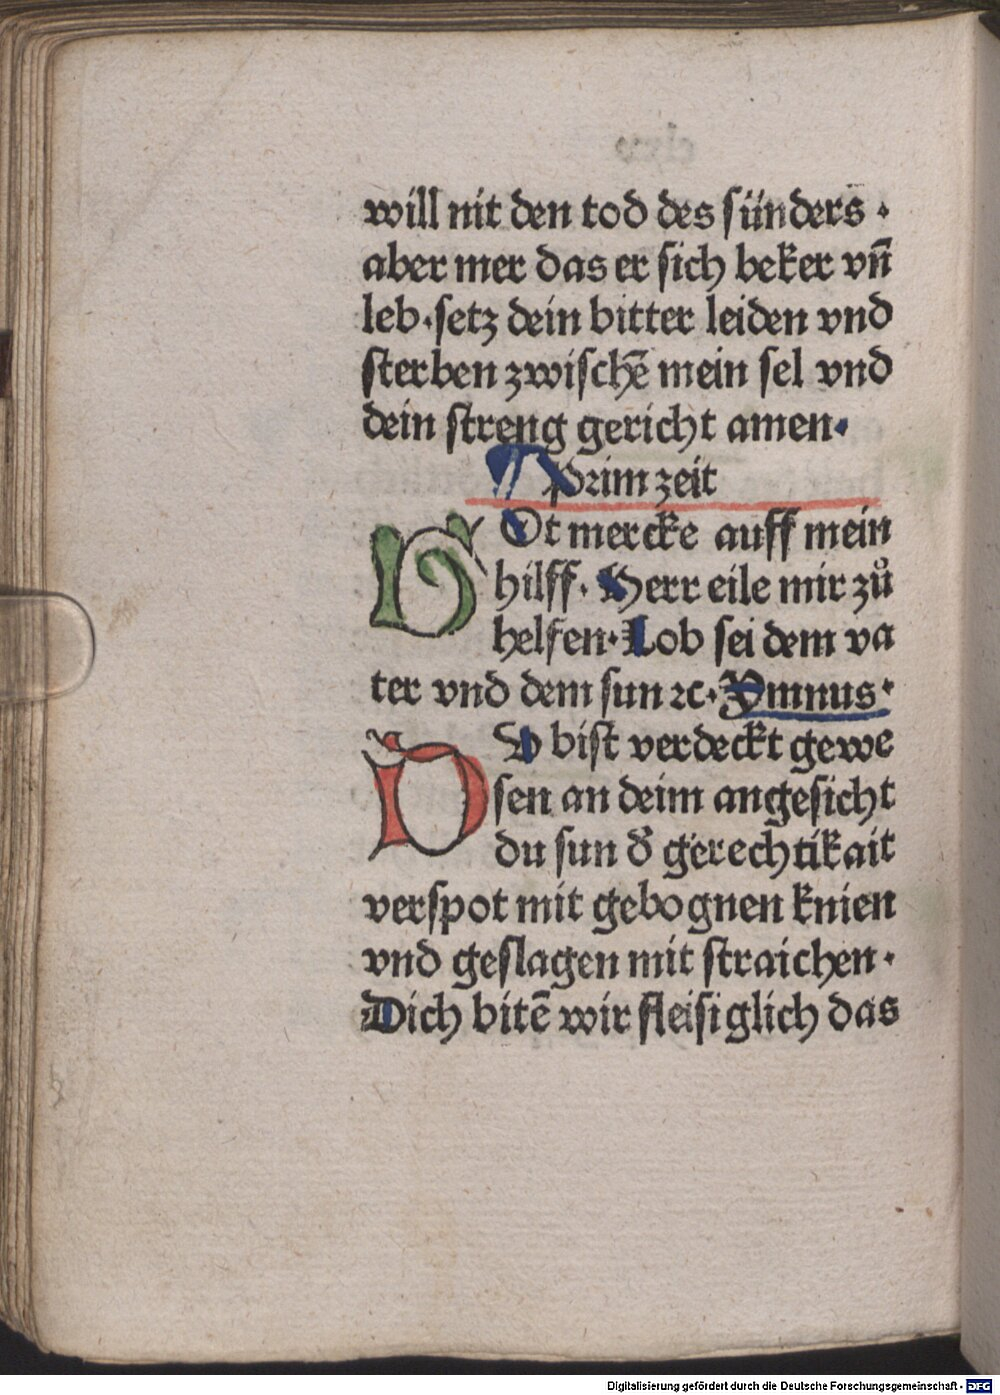 will nit den tod des sünders ·
aber mer das er sich beker vn̄
leb · setz dein bitter leiden vnd
sterben zwischē mein sel vnd
dein streng gericht amen ·
¶ Prim zeit
GOt mercke auff mein
hilff · Herr eile mir zů
helfen · Lob sei dem va
ter vnd dem sun ⁊c · Ymnus ·
DV bist verdeckt gewe
sen an deim angesicht
du sun d̕ gerechtikait
verspot mit gebognen knien
vnd geslagen mit straichen ·
Dich bitē wir fleisiglich das
Digitalisierung gefördert durch die Deutsche Forschungsgemeinschaft - DFG